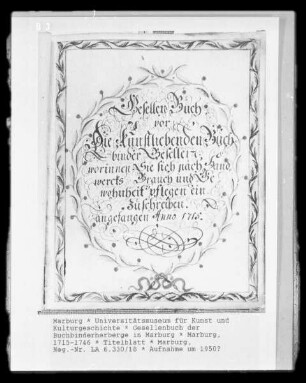 Gesellen Buch
vor
Die Kunstliebenden Buch
binder Gesellen,
worinnen Sie sich nach Hand
wercks Brauch und Ge
wohnheit pflegen ein
Zuschreiben.
angefangen Anno 1715.
Marburg * Universitätsmuseum für Kunst und
Kulturgeschichte * Gesellenbuch der
Buchbinderherberge in Marburg * Marburg,
1715-1746 * Titelblatt * Marburg,
Neg.-Nr. LA 6.330/18 * Aufnahme um 1950?